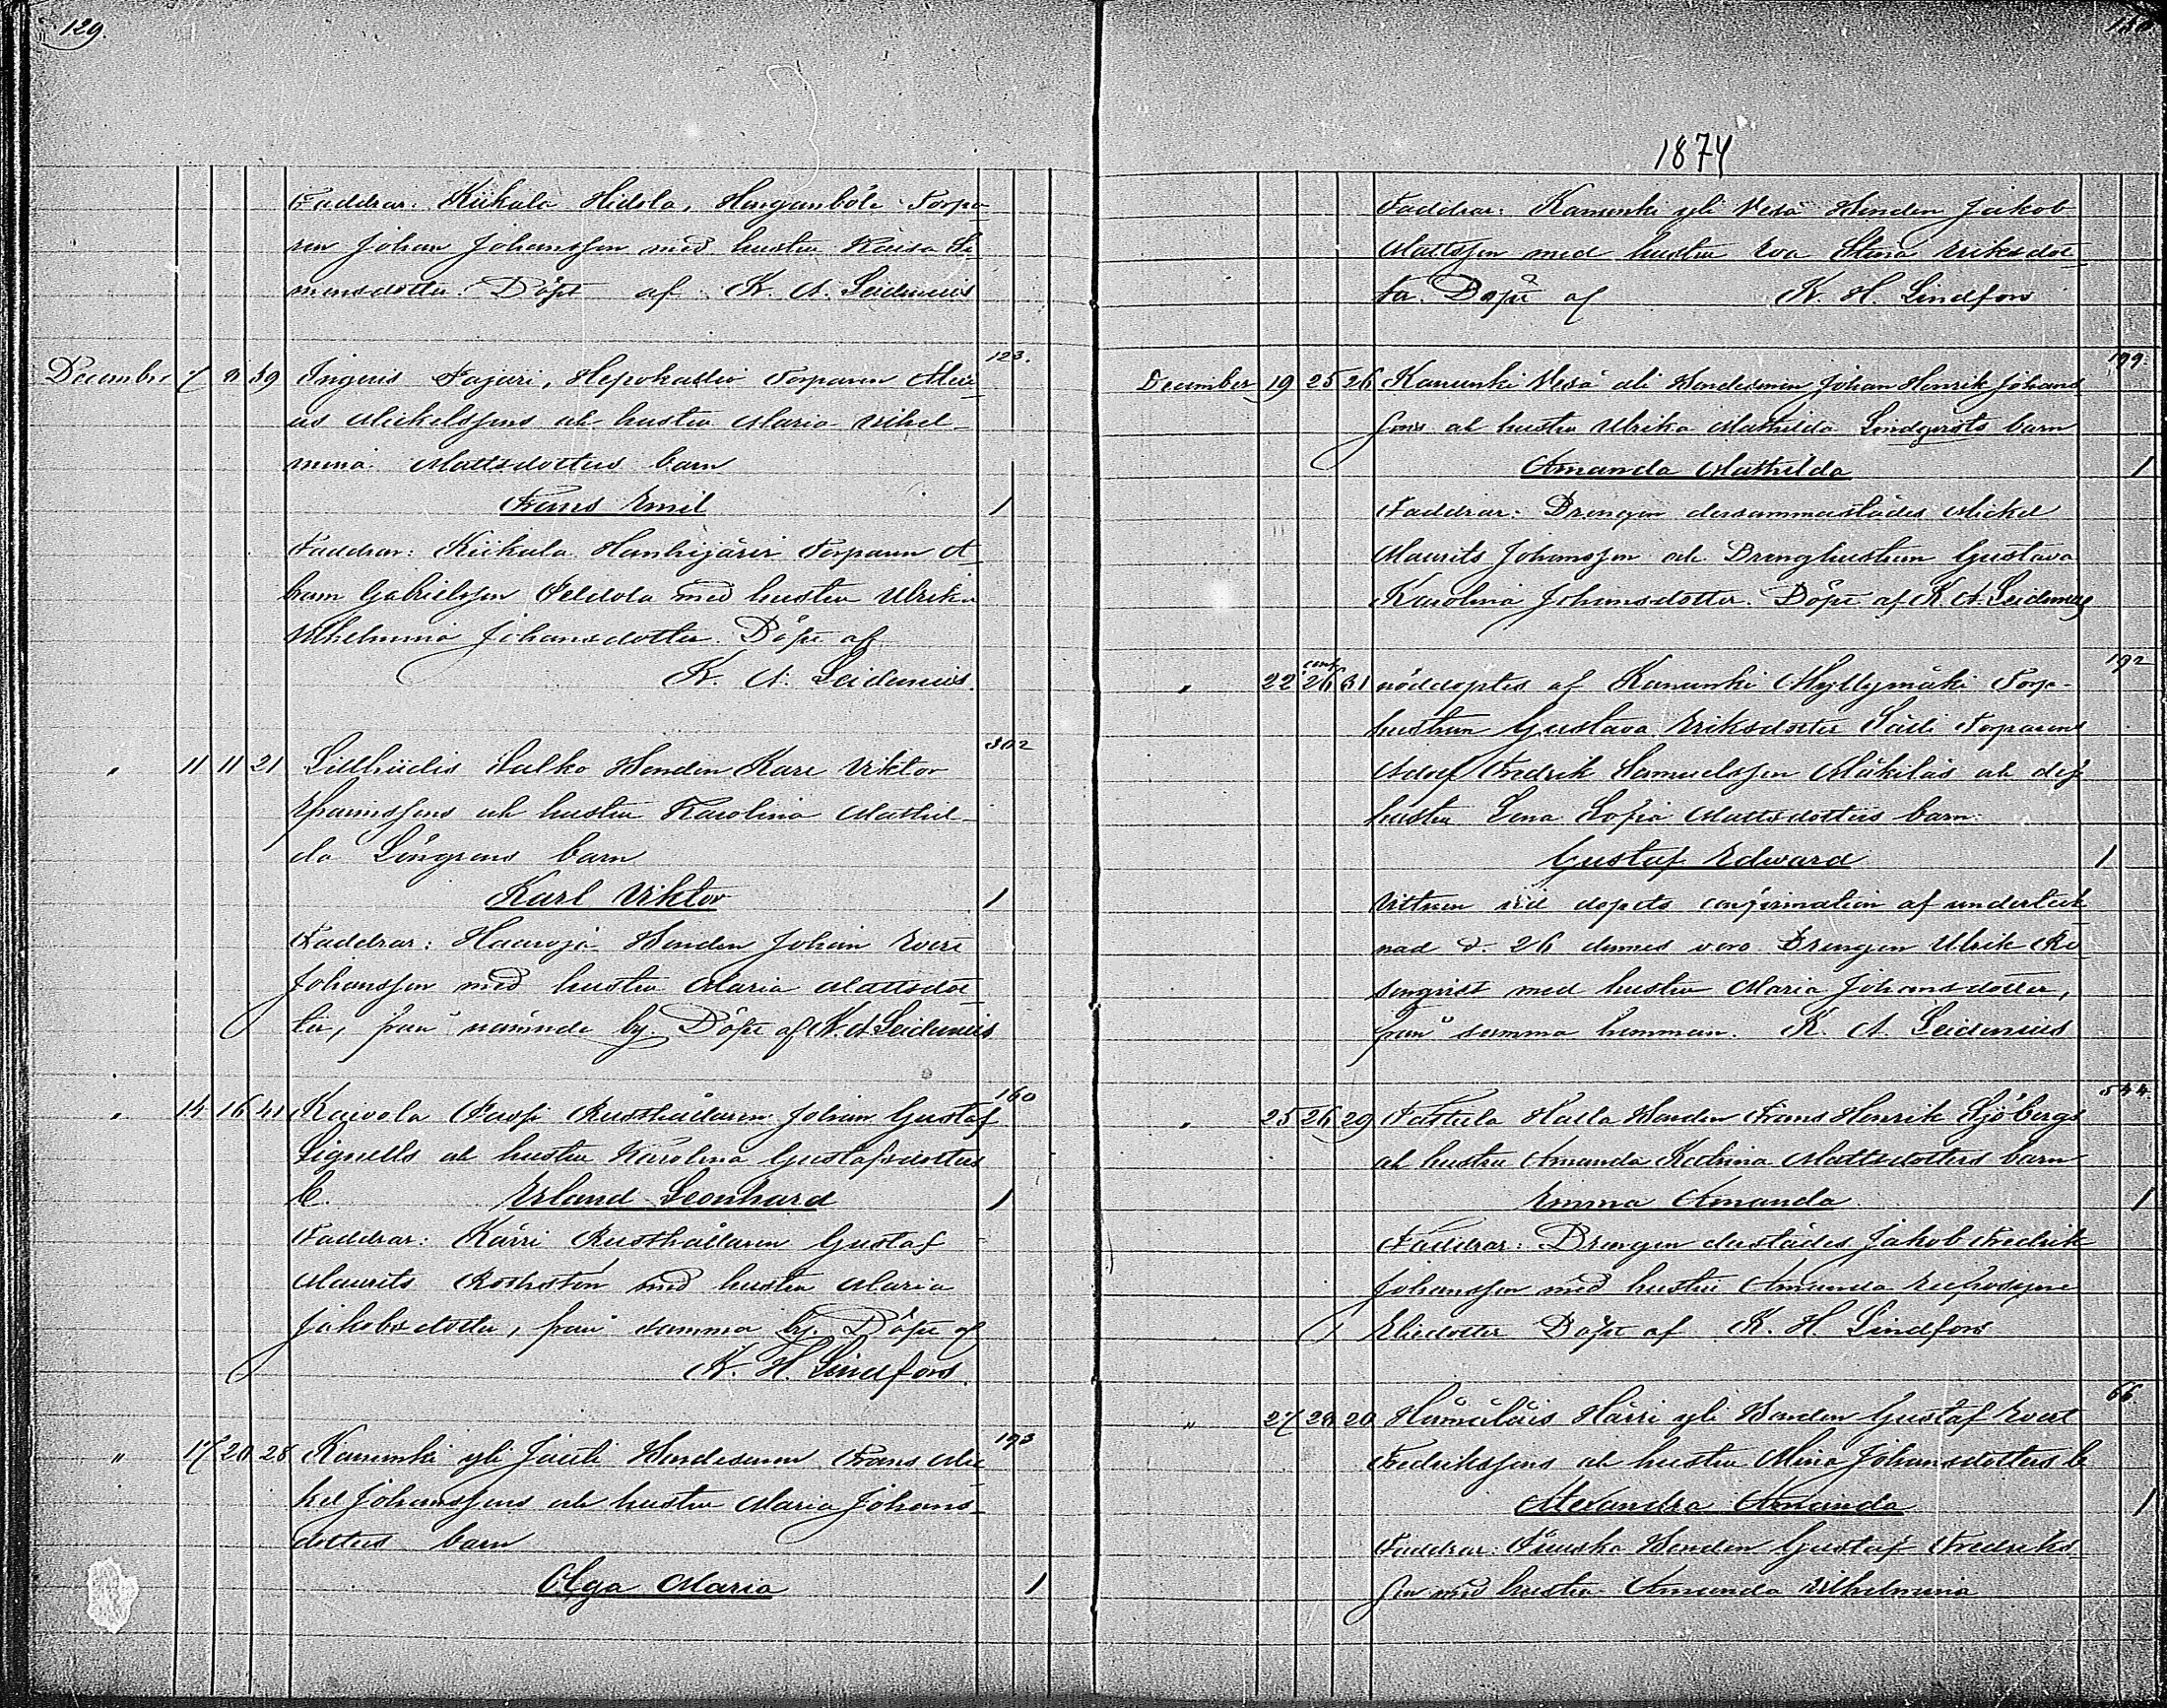 129.
Faddrar: Kiikala Hidola, Hinganböle Torpa-
ren Johan Johansson med hustru Kaisa Si-
monsdotter. Döpt af K. A. Leidenius
123.
December 7 8 39 Ingeris Pajari, Hepokallio Torparen
Mickelssons och hustru Maria Vilhel-
mina Mattsdotters barn
Frans Emil 1
Faddrar: Kiikala Hanhijärvi Torparen A-
bram Gabrielsson Peldola med hustru Ulrika
Vilhelmina Johansdotter. Döpt af
K. A. Leidenius.
302
" 11 11 21 Salko Bonden Karl Viktor
Efraimssons och hustru Karolina Mathil-
da Löngrens barn
Karl Viktor 1
Faddrar: Bonden Johan Evert
Johansson med hustru Maria Mattsdot-
ter, från nämnde by. Döpt af K. A. Leidenius
160
" 14 16 41 Kaivola Rusthållaren Johan Gustaf
Lignells och hustru Karolina Gustafsdotters
b. Erland Leonhard 1
Faddrar: Kärri Rusthållaren Gustaf
Maurits med hustru Maria
Jakobsdotter, från samma by. Döpt af
K. H. Lindfors.
193
" 17 20 28 Kanunki yli Jaeli Bondesonen Frans Mic-
kel Johanssons och hustru Maria Johans-
dotters barn
Olga Maria 1
130
1874
Faddrar: Kanunki yli Vesa Bonden Jakob
Mattsson med hustru Eva Stina Eriksdot-
ter. Döpt af K. H. Lindfors
199.
December 19 25 26 Kanunki Vesa ali Bondesonen Johan Henrik Johans-
sons och hustru Ulrika Mathilda Lindqvists barn
Amanda Mathilda 1
Faddrar: Drengen dersammastädes Mickel
Maurits Johansson och Drenghustrun Gustava
Karolina Johansdotter. Döpt af K. A. Leidenius
192
" 22 conf. 26 31 nöddöptes af Kanunki Myllymäki Torp-
hustrun Gustava Eriksdotter Torparens
Adolf Fredrik Samuelsson Mäkiläs och dess
hustru Lena Sofia Mattsdotters barn
Gustaf Edward 1
Vittnen vid dopets confirmation af underteck-
nad d. 26 dennes voro Drengen Ulrik Ro-
senqvist med hustru Maria Johansdotter,
från samma hemman. K. A. Leidenius
544.
" 25 26 29 Pattula Halla Bonden Frans Henrik Sjöbergs
och hustru Amanda Katrina Mattsdotters barn
Emma Amanda 1
Faddrar: Drengen derstädes Jakob Fredrik
Johansson med hustru Amanda Eufrosyne
Eliedotter Döpt af K. H. Lindfors
66.
" 27 28 20 Hämeläis Härri yli Bonden Gustaf Evert
Fredrikssons och hustru Mina Johansdotters b
Alexandra Amanda 1
Faddrar: Bonden Gustaf Fredriks-
son med hustru Amanda Vilhelmina